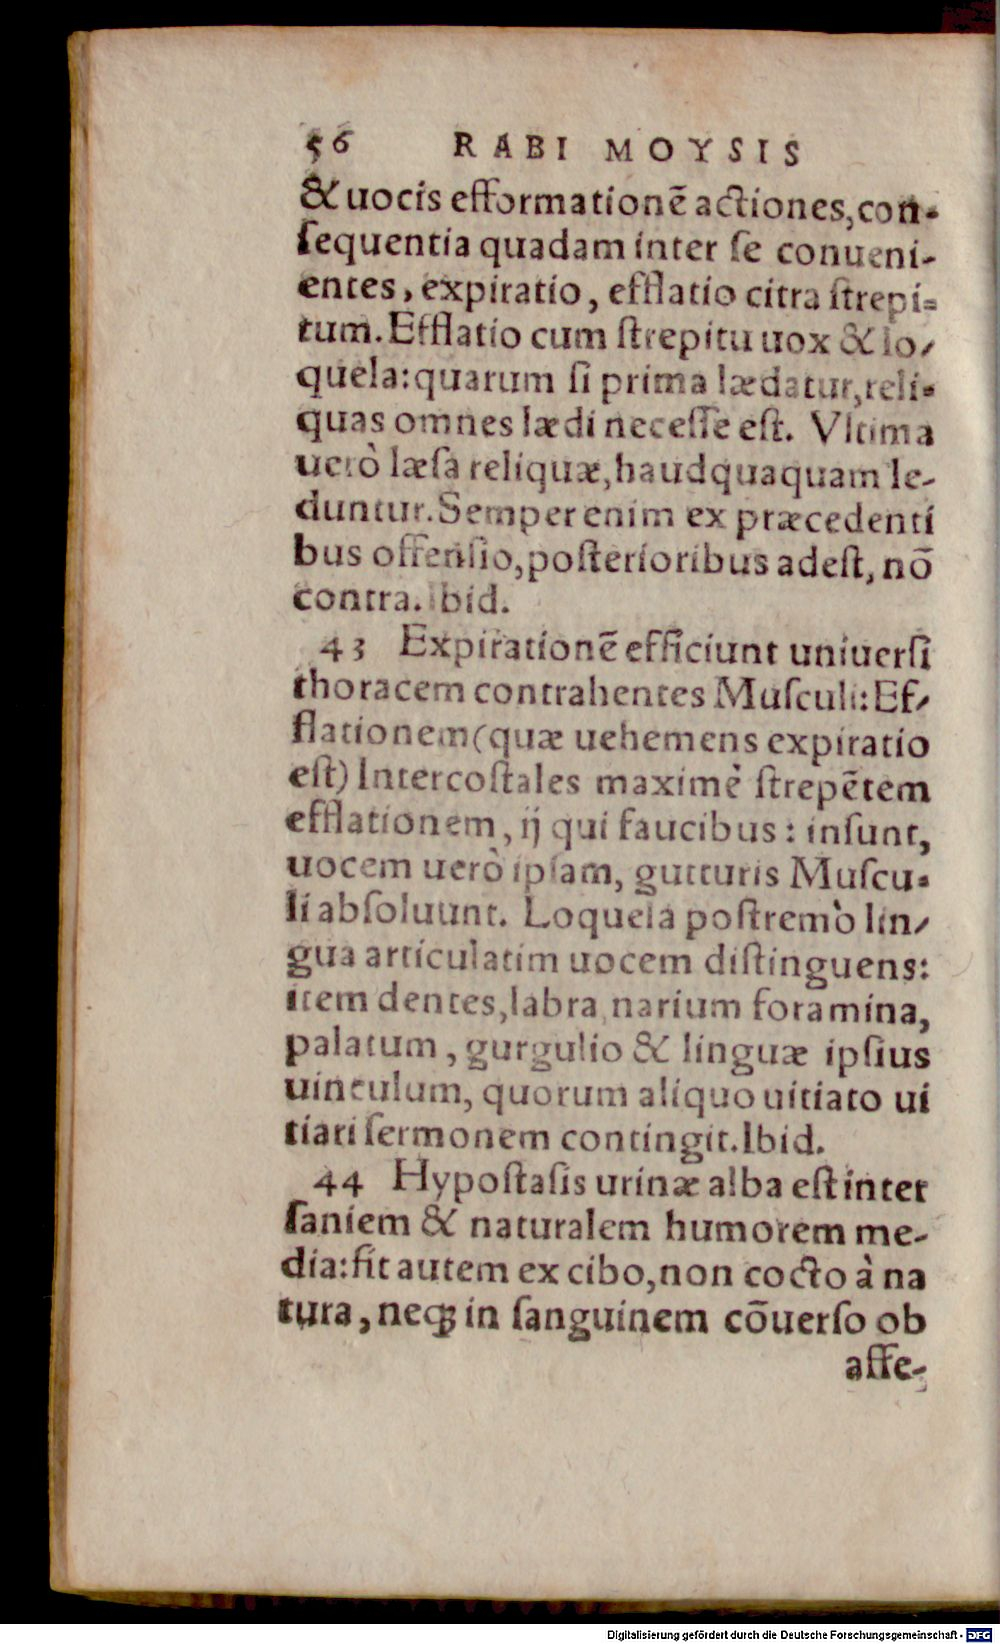 56 RABI MOYSIS
& uocis efformationẽ actiones, con-
ſequentia quadam inter ſe conueni-
entes, expiratio, efflatio citra ſtrepi-
tum. Efflatio cum ſtrepitu uox & lo-
quela: quarum ſi prima lædatur, reli-
quas omnes lædi neceſſe eſt. Vltima
uerò læſa reliquæ, haudquaquam le-
duntur. Semper enim ex præcedenti
bus offenſio, poſterioribus adeſt, nõ
contra. Ibid.
43 Expirationẽ efficiunt uniuerſi
thoracem contrahentes Muſculi: Ef-
flationem (quæ uehemens expiratio
eſt) Intercoſtales maximè ſtrepẽtem
efflationem, ij qui faucibus: inſunt,
uocem uerò ipſam, gutturis Muſcu-
li abſoluunt. Loquela poſtremò lin-
gua articulatim uocem diſtinguens:
item dentes, labra, narium foramina,
palatum, gurgulio & linguæ ipſius
uinculum, quorum aliquo uitiato ui
tiari ſermonem contingit. Ibid.
44 Hypoſtaſis urinæ alba eſt inter
ſaniem & naturalem humorem me-
dia: fit autem ex cibo, non cocto à na
tura, neqꝫ in ſanguinem cõuerſo ob
affe-
Digitalisierung gefördert durch die Deutsche Forschungsgemeinschaft - DFG